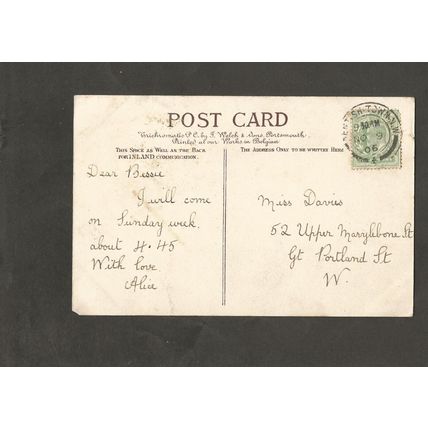 POST CARD
Trichromatic P.C. by J. Welch & Sons, Portsmouth.
Printed at our Works in Belgium
THIS SPACE AS WELL AS THE BACK
FOR INLAND COMMUNICATION.
THE ADDRESS ONLY TO BE WRITTEN HERE
Dear Bessie
I will come
on Sunday week
about 4.45
With love
Alice
Miss Davies
52 Upper Marylebone St
Gt Portland St
W.
KENTISH TOWN N.W.
06